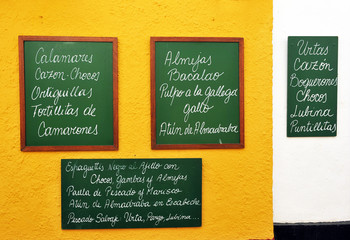 Calamares
Cazon-Chocos
Ortiguillas
Tortillitas de
Camarones
Almejas
Bacalao
Pulpo a la Gallega
gallo
Atún de Almadraba
Urtas
Cazón
Boquerones
Chocos
Lubina
Puntillitas
Espaguetis Negro al Ajillo con
Chocos Gambas y Almejas
Paella de Pescado y Marisco
Atún de Almadraba en Escabeche
Pescado Salvaje Urta, Pargo, Lubrina...